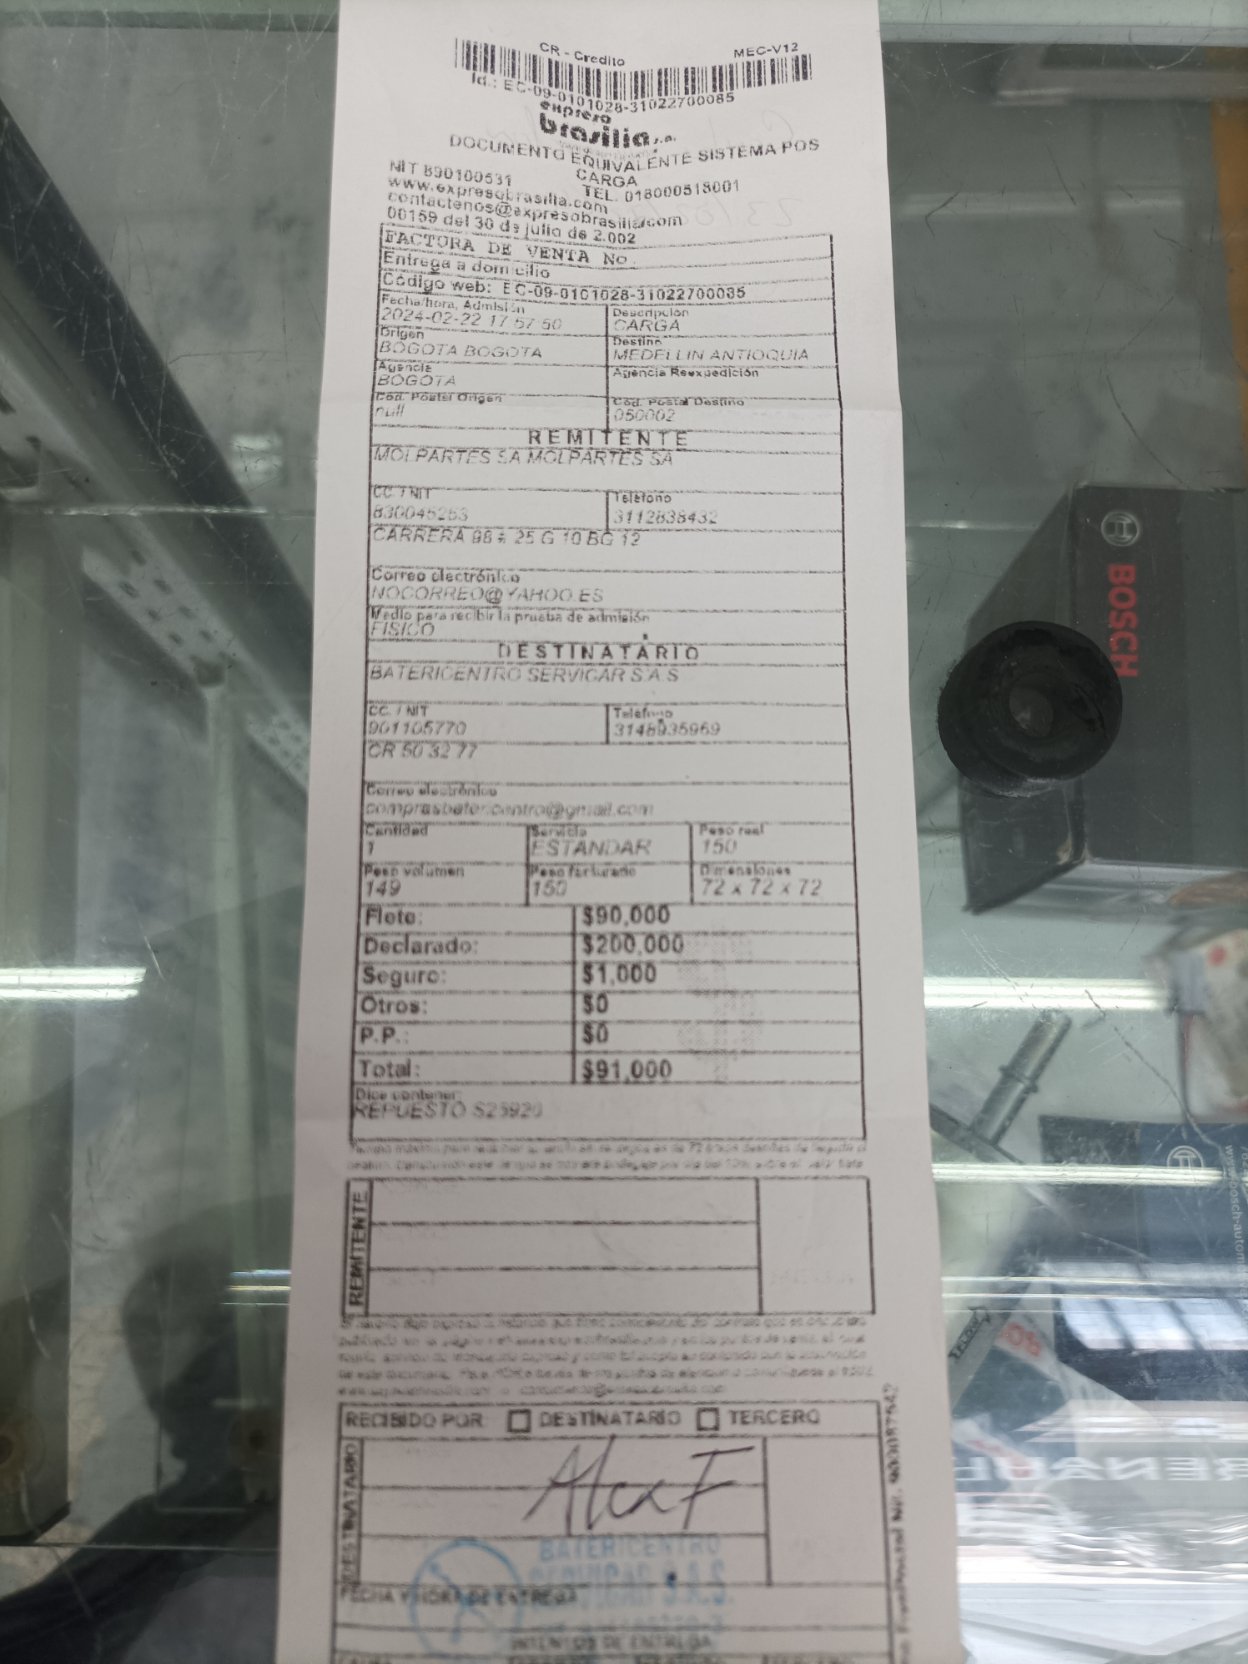 CR - Credito
MEC-V12
Id.: EC-09-0101028-31022700085
expreso
brasilia s.a.
DOCUMENTO EQUIVALENTE SISTEMA POS
CARGA
NIT 890100531
TEL. 018000518001
www.expresobrasilia.com
contactenos@expresobrasilia.com
00159 del 30 de julio de 2.002
FACTORA DE VENTA No.
Entrega a domicilio
Código web: EC-09-0101028-31022700085
Fecha/hora, Admisión
2024-02-22 17:57:50
Descripción
CARGA
Origen
BOGOTA BOGOTA
Destino
MEDELLIN ANTIOQUIA
Agencia
BOGOTA
Agencia Reexpedición
Cod. Postal Origen
null
Cod. Postal Destino
050002
REMITENTE
MOLPARTES SA MOLPARTES SA
CC. / NIT
830045253
Teléfono
3112838432
CARRERA 98 # 25 G 10 BG 12
Correo electrónico
NOCORREO@YAHOO.ES
Medio para recibir la prueba de admisión
FISICO
DESTINATARIO
BATERICENTRO SERVICAR S A S
CC. / NIT
901105770
Teléfono
3148935969
CR 50 32 77
Correo electrónico
comprasbatericentro@gmail.com
Cantidad
1
Servicio
ESTANDAR
Peso real
150
Peso volumen
149
Peso facturado
150
Dimensiones
72 x 72 x 72
Flete: $90,000
Declarado: $200,000
Seguro: $1,000
Otros: $0
P.P.: $0
Total: $91,000
Dice contener:
REPUESTO S25920
REMITENTE
RECIBIDO POR: DESTINATARIO TERCERO
DESTINATARIO
Alex F
BATERICENTRO
SERVICAR S.A.S.
FECHA Y HORA DE ENTREGA
INTENTOS DE ENTREGA
BOSCH
RENAUL